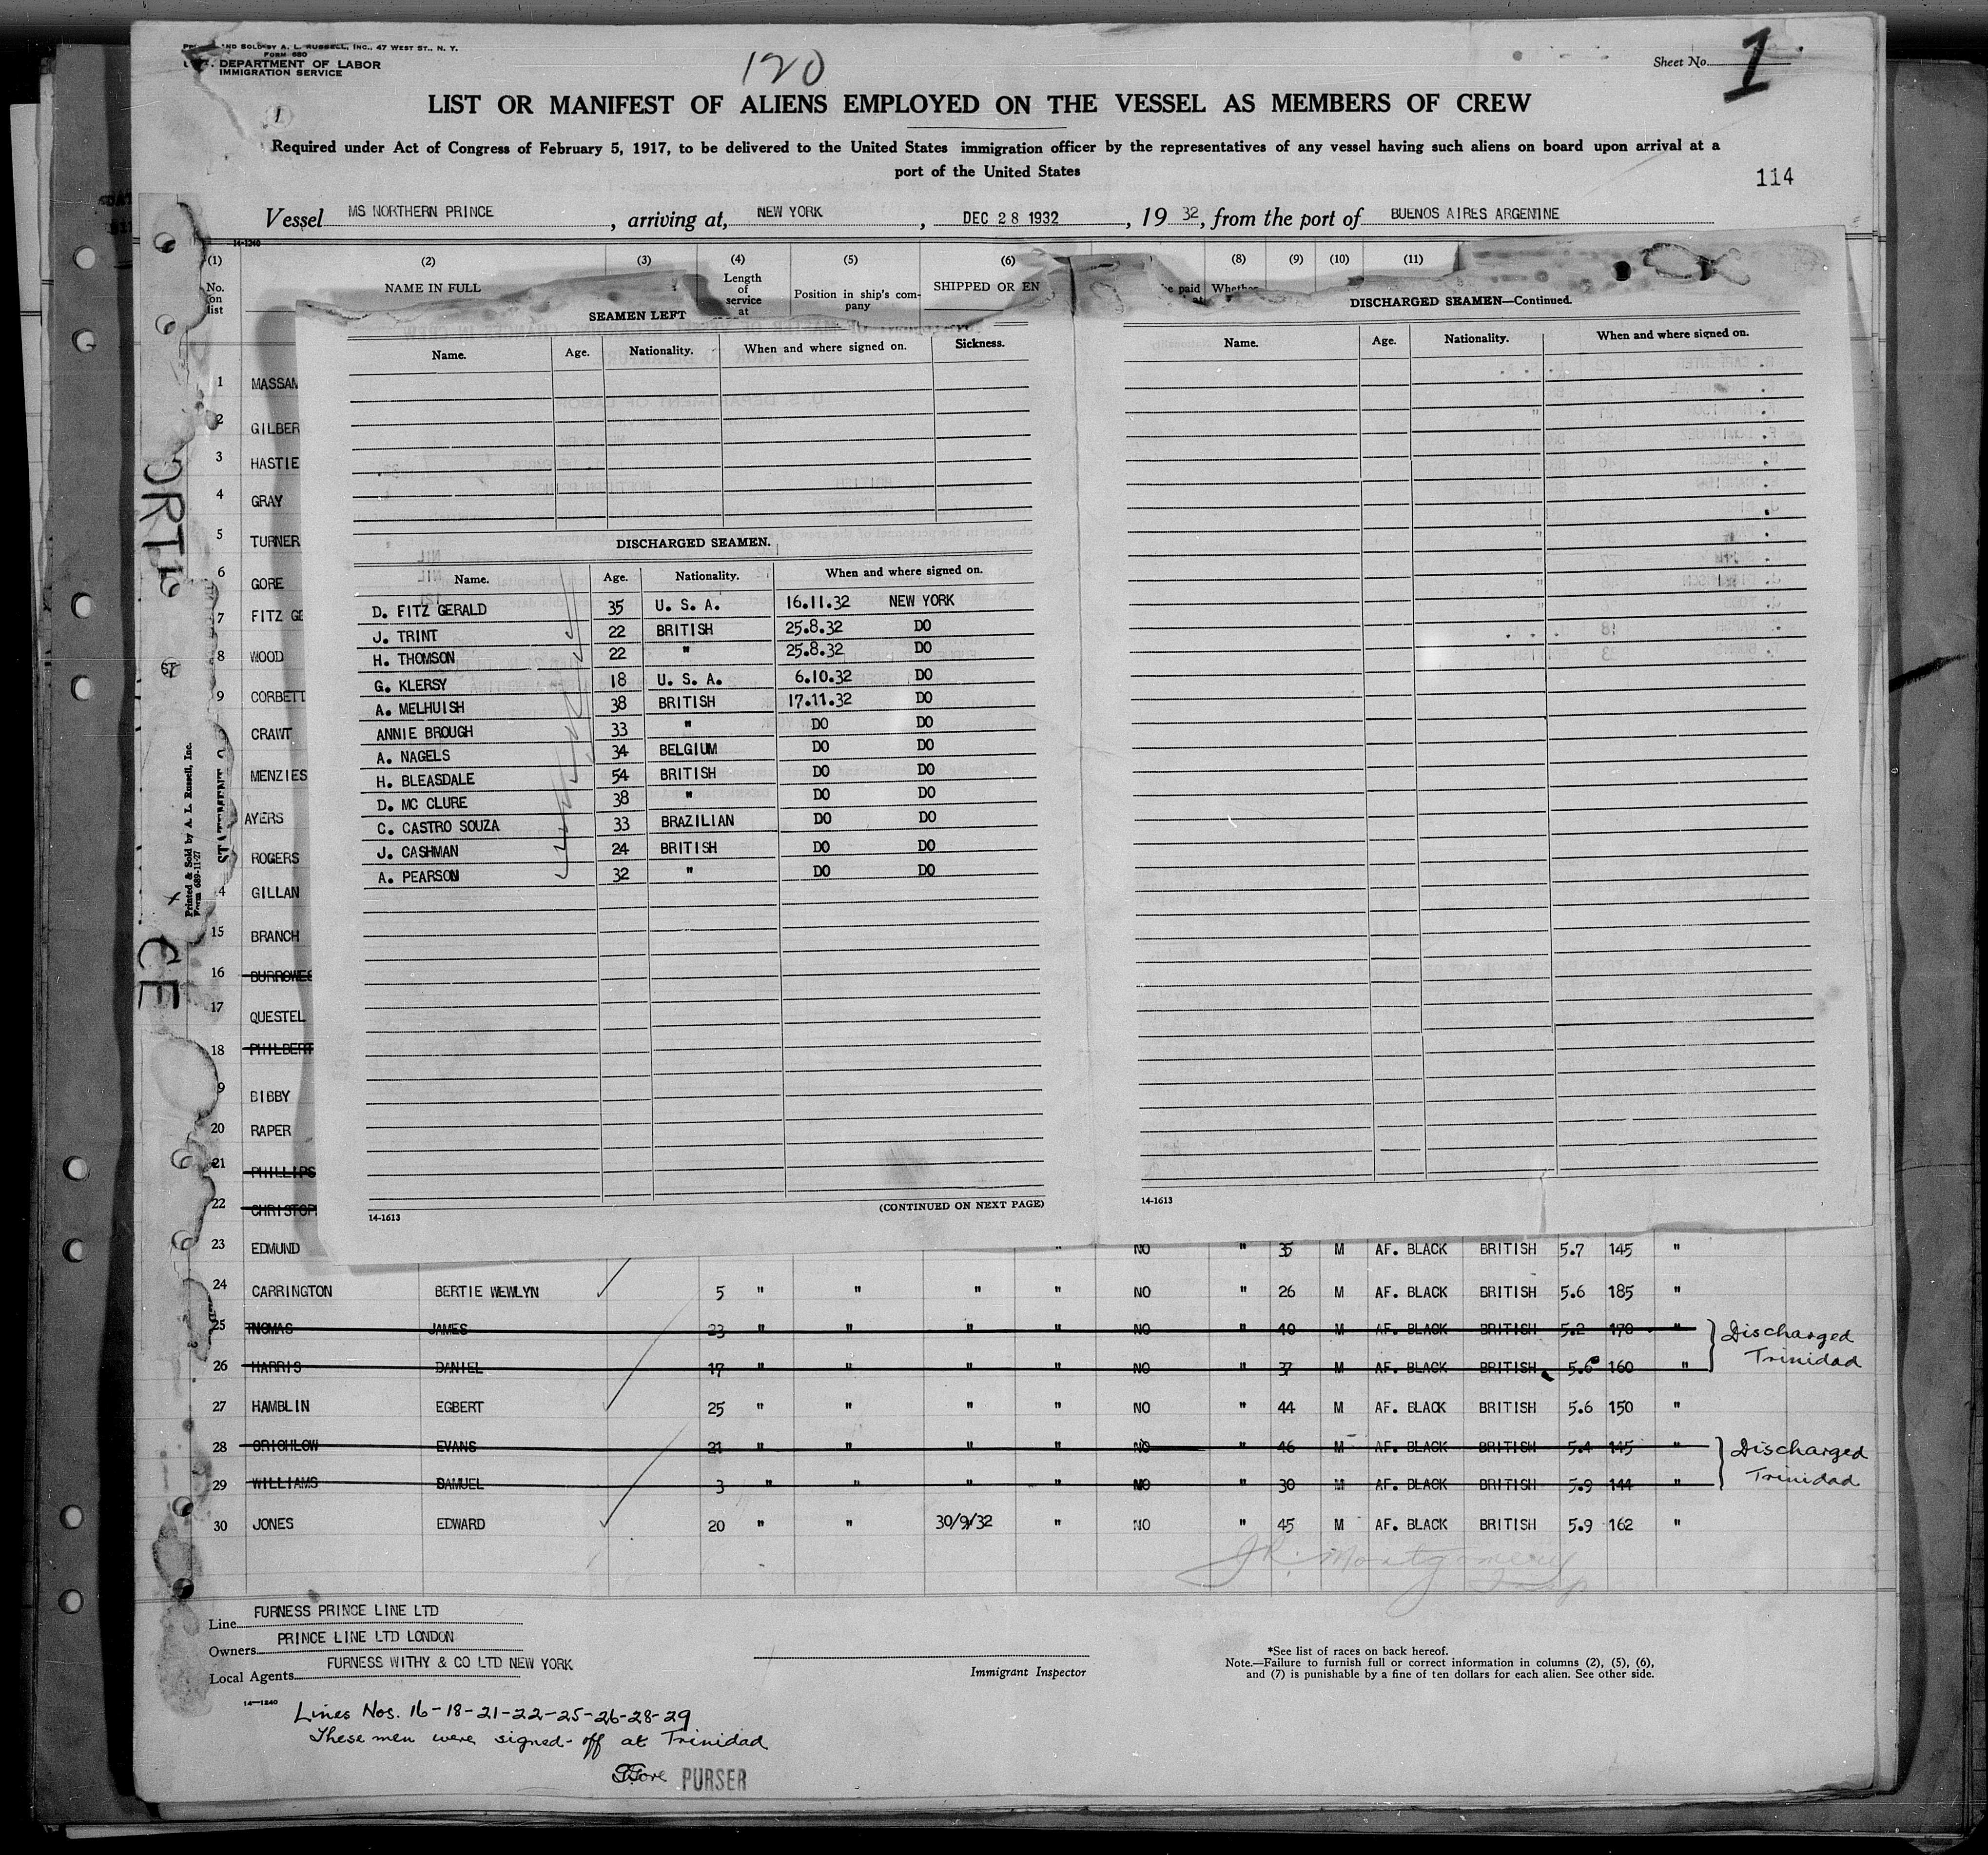 AND SOLD BY A. L. RUSSELL, INC., 47 WEST ST., N. Y.
FORM 680
DEPARTMENT OF LABOR
IMMIGRATION SERVICE
120
Sheet No. 1
1
LIST OR MANIFEST OF ALIENS EMPLOYED ON THE VESSEL AS MEMBERS OF CREW
Required under Act of Congress of February 5, 1917, to be delivered to the United States immigration officer by the representatives of any vessel having such aliens on board upon arrival at a
port of the United States
114
Vessel MS NORTHERN PRINCE, arriving at, NEW YORK, DEC 28 1932, 19 32, from the port of BUENOS AIRES ARGENTINE
14-1240
(1) (2) (3) (4) (5) (6) (8) (9) (10) (11)
No. on list NAME IN FULL Length of service at Position in ship's company SHIPPED OR EN be paid Whether
SEAMEN LEFT
Name. Age. Nationality. When and where signed on. Sickness.
DISCHARGED SEAMEN.
Name. Age. Nationality. When and where signed on.
D. FITZ GERALD 35 U. S. A. 16.11.32 NEW YORK
J. TRINT 22 BRITISH 25.8.32 DO
H. THOMSON 22 " 25.8.32 DO
G. KLERSY 18 U. S. A. 6.10.32 DO
A. MELHUISH 38 BRITISH 17.11.32 DO
ANNIE BROUGH 33 " DO DO
A. NAGELS 34 BELGIUM DO DO
H. BLEASDALE 54 BRITISH DO DO
D. MC CLURE 38 " DO DO
C. CASTRO SOUZA 33 BRAZILIAN DO DO
J. CASHMAN 24 BRITISH DO DO
A. PEARSON 32 " DO DO
14-1613
(CONTINUED ON NEXT PAGE)
DISCHARGED SEAMEN—Continued.
Name. Age. Nationality. When and where signed on.
14-1613
1 MASSAM
2 GILBER
3 HASTIE
4 GRAY
5 TURNER
6 GORE
7 FITZ GE
8 WOOD
9 CORBETT
CRAWT
MENZIES
AYERS
ROGERS
4 GILLAN
15 BRANCH
16 BURROWES
17 QUESTEL
18 PHILBERT
9 BIBBY
20 RAPER
21 PHILLIPS
22 CHRISTOP
23 EDMUND " NO " 35 M AF. BLACK BRITISH 5.7 145 "
24 CARRINGTON BERTIE WEWLYN 5 " " " " NO " 26 M AF. BLACK BRITISH 5.6 185 "
25 THOMAS JAMES 23 " " " " NO " 40 M AF. BLACK BRITISH 5.2 170 "
26 HARRIS DANIEL 17 " " " " NO " 37 M AF. BLACK BRITISH 5.6 160 "
Discharged
Trinidad
27 HAMBLIN EGBERT 25 " " " " NO " 44 M AF. BLACK BRITISH 5.6 150 "
28 CRICHLOW EVANS 21 " " " " NO " 46 M AF. BLACK BRITISH 5.4 145 "
29 WILLIAMS SAMUEL 3 " " " " NO " 30 M AF. BLACK BRITISH 5.9 144 "
Discharged
Trinidad
30 JONES EDWARD 20 " " 30/9/32 " NO " 45 M AF. BLACK BRITISH 5.9 162 "
J R. Montgomery
Printed & Sold by A. L. Russell, Inc.
Form 689-11-27
ORT
CE
Line FURNESS PRINCE LINE LTD
Owners PRINCE LINE LTD LONDON
Local Agents FURNESS WITHY & CO LTD NEW YORK
14-1240
Immigrant Inspector
*See list of races on back hereof.
Note.—Failure to furnish full or correct information in columns (2), (5), (6),
and (7) is punishable by a fine of ten dollars for each alien. See other side.
Lines Nos. 16-18-21-22-25-26-28-29
These men were signed-off at Trinidad
Gore PURSER